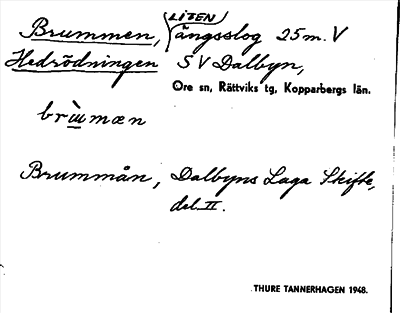 Brummen, (LITEN) ängsslog 25 m. V
Hedrödningen SV Dalbyn,
Ore sn, Rättviks tg, Kopparbergs län.
brùmæn
Brummån, Dalbyns Laga Skifte,
del. II.
THURE TANNERHAGEN 1948.